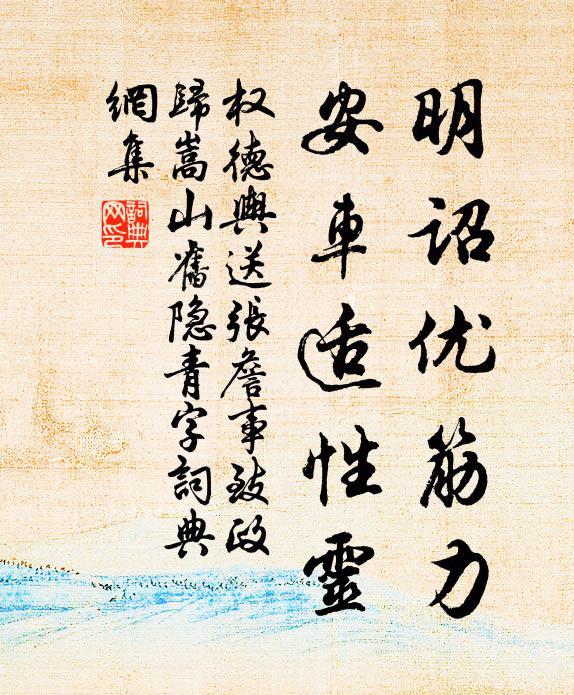 明诏优筋力
安車适性靈
权德輿送張詹事致政
歸嵩山舊隐青字詞典
網集
詞典
网印